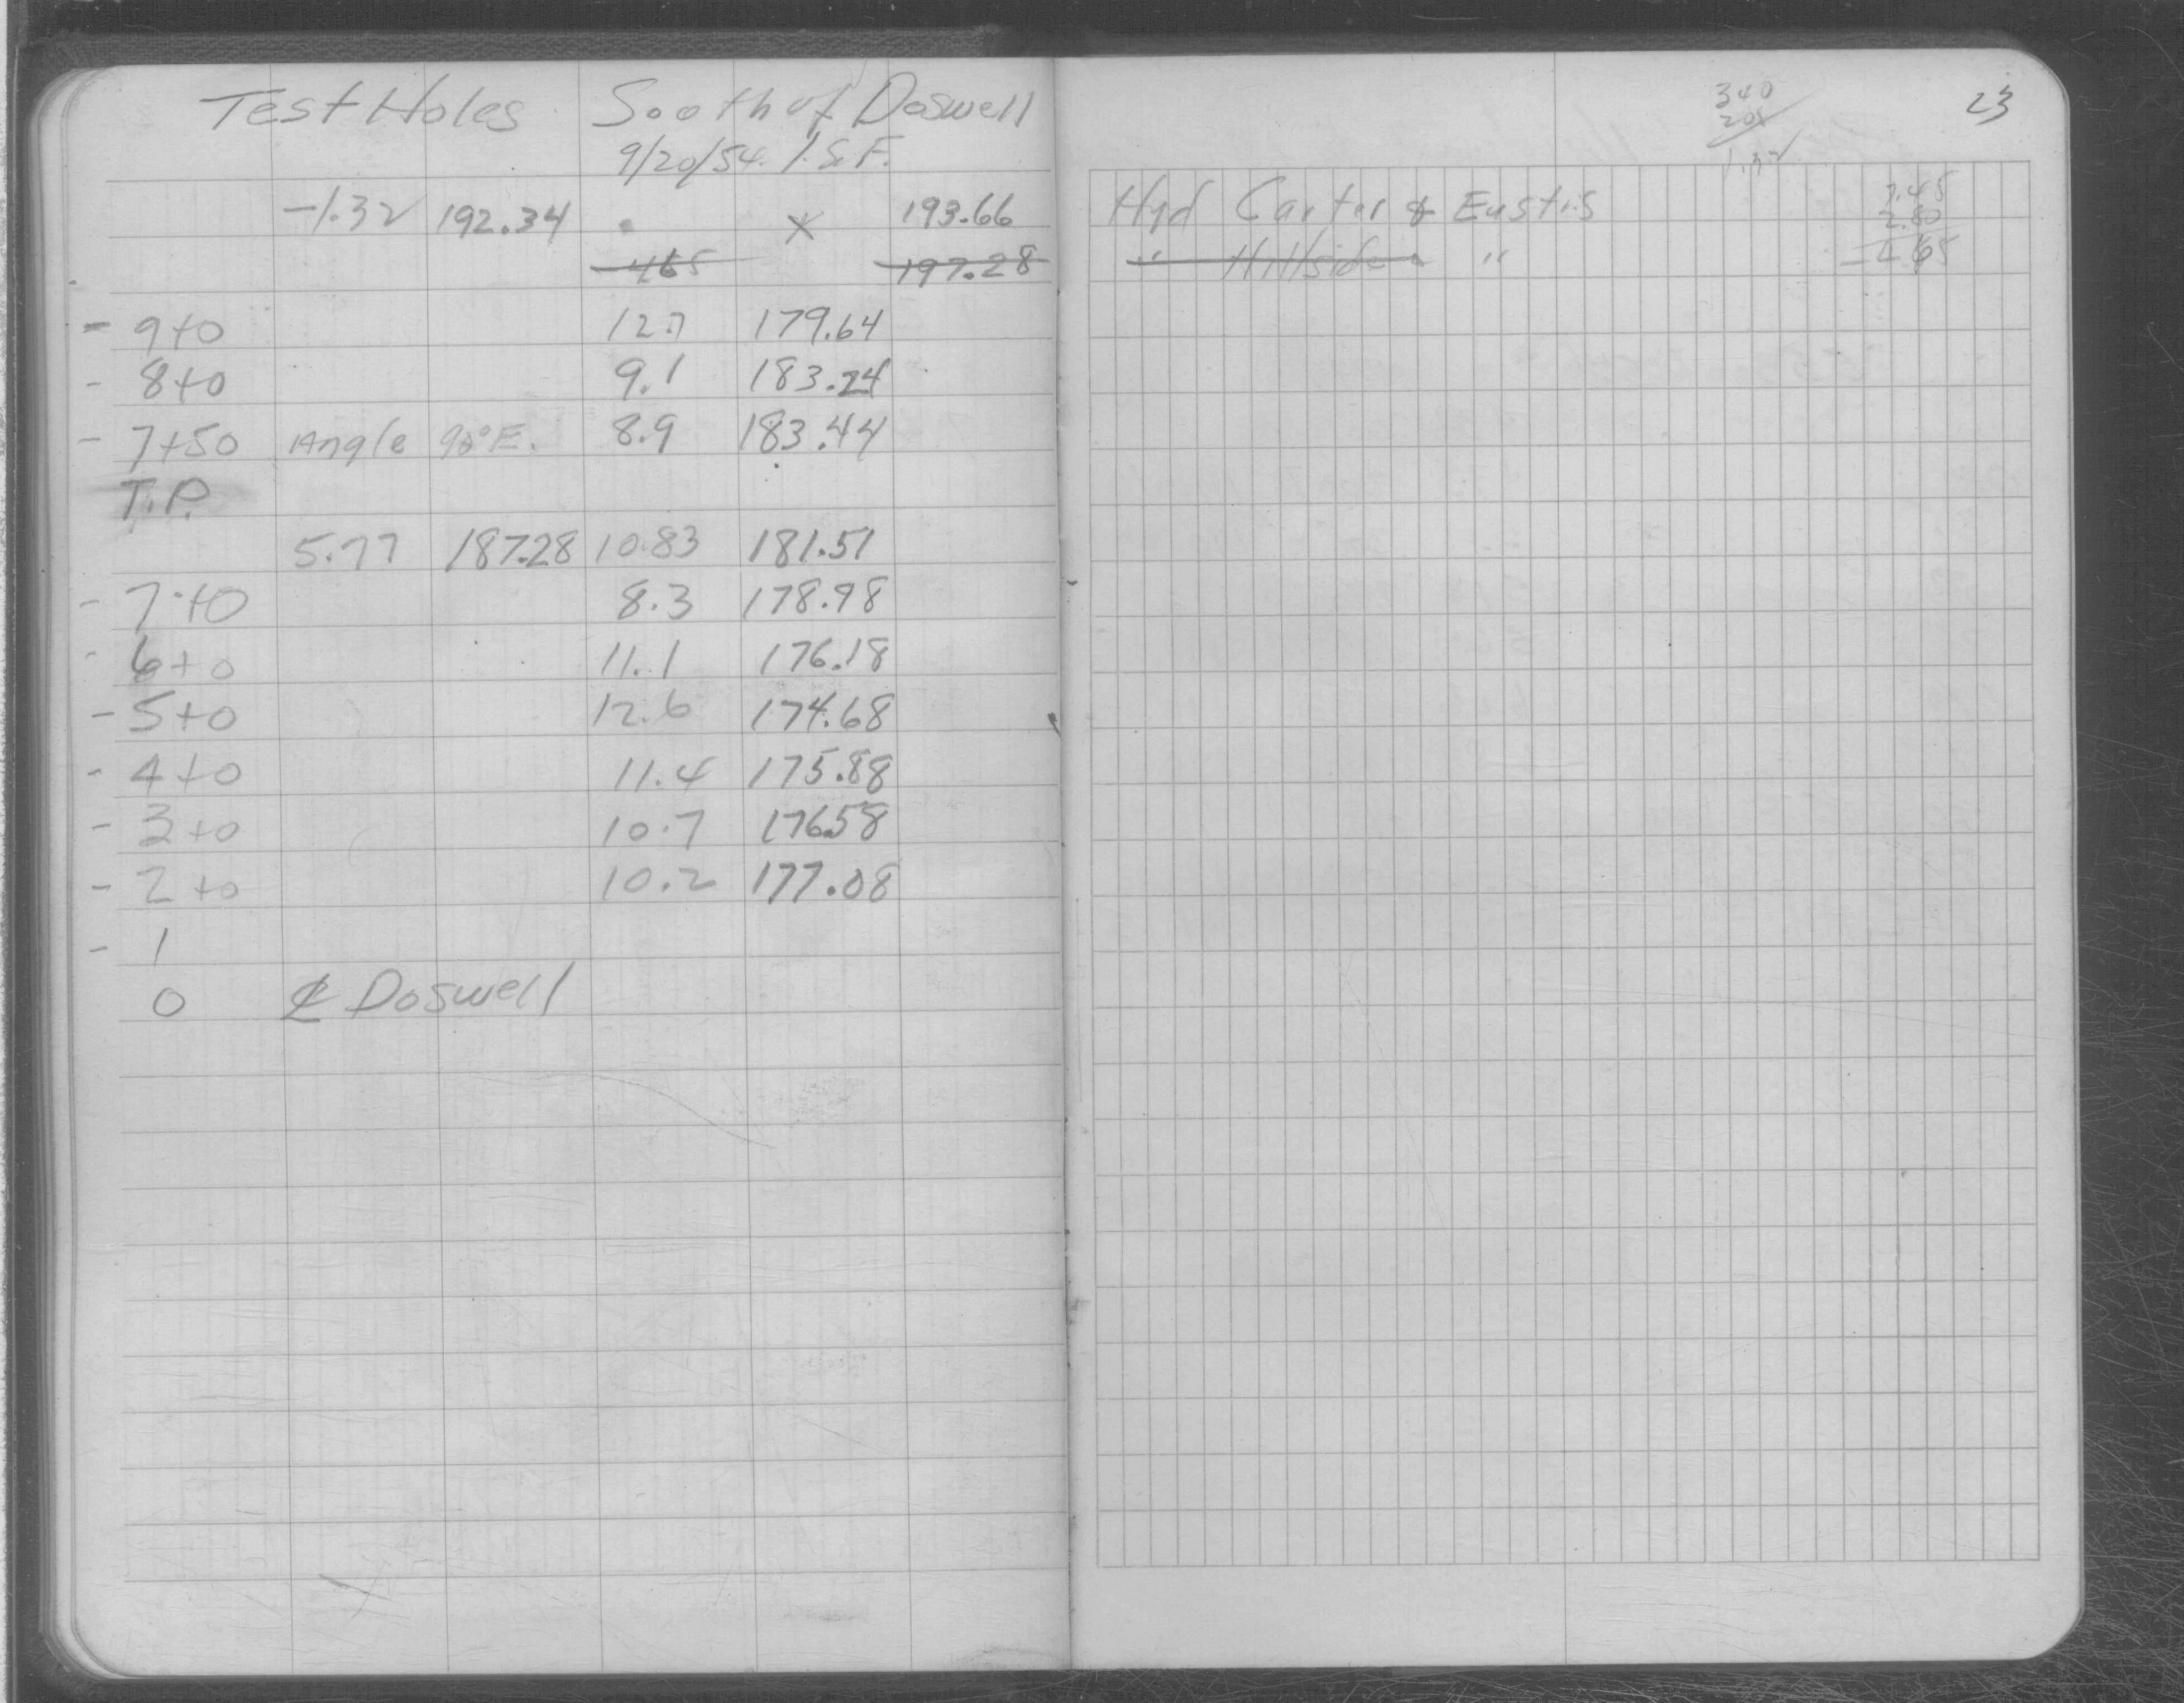 Test Holes South of Doswell
9/20/54. I.S.F.
-1.32 192.34 x 193.66
465 197.28
- 9+0 12.7 179.64
- 8+0 9.1 183.24
- 7+50 Angle 90°E. 8.9 183.44
T.P.
5.77 187.28 10.83 181.51
- 7+0 8.3 178.98
- 6+0 11.1 176.18
- 5+0 12.6 174.68
- 4+0 11.4 175.88
- 3+0 10.7 176.58
- 2+0 10.2 177.08
- 1
0 ℄ Doswell
23
340
208
1.32
Hyd Carter & Eustis
" Hillside & "
7.45
2.80
- 4.65